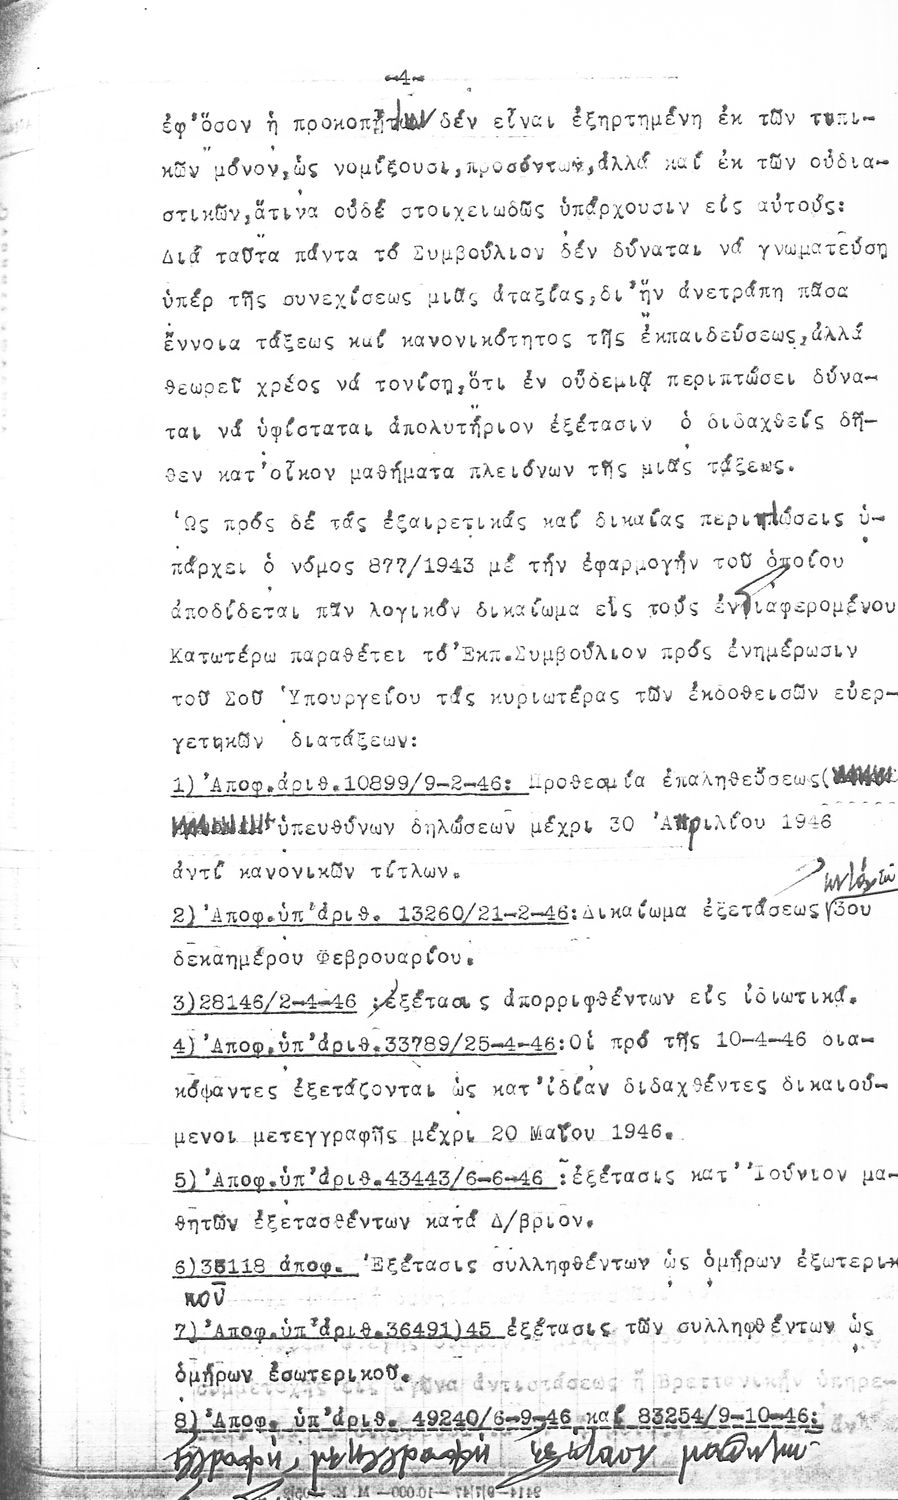 -4-
ἐφ'ὅσον ἡ προκοπή των δέν εἶναι ἐξηρτημένη ἐκ τῶν τυπι-
κῶν μόνον,ὡς νομίζουσι,προσόντων,ἀλλά καί ἐκ τῶν οὐδια-
στικῶν,ἅτινα οὐδέ στοιχειωδῶς ὑπάρχουσιν εἰς αὐτούς:
Διά ταῦτα πάντα τό Συμβούλιον δέν δύναται νά γνωματεύσῃ
ὑπέρ τῆς συνεχίσεως μιᾶς ἀταξίας,δι'ἥν ἀνετράπη πᾶσα
ἔννοια τάξεως καί κανονικότητος τῆς ἐκπαιδεύσεως,ἀλλά
θεωρεῖ χρέος νά τονίσῃ,ὅτι ἐν οὐδεμιᾷ περιπτώσει δύνα-
ται νά ὑφίσταται ἀπολυτήριον ἐξέτασιν ὁ διδαχθείς δῆ-
θεν κατ'οἶκον μαθήματα πλειόνων τῆς μιᾶς τάξεως.
Ὡς πρός δέ τάς ἐξαιρετικάς καί δικαίας περιπτώσεις ὑ-
πάρχει ὁ νόμος 877/1943 μέ τήν ἐφαρμογήν τοῦ ὁποίου
ἀποδίδεται πᾶν λογικόν δικαίωμα εἰς τούς ἐνδιαφερομένου
Κατωτέρω παραθέτει τό Ἐκπ.Συμβούλιον πρός ἐνημέρωσιν
τοῦ Σοῦ Ὑπουργείου τάς κυριωτέρας τῶν ἐκδοθεισῶν εὐερ-
γετικῶν διατάξεων:
1)Ἀποφ.ἀριθ.10899/9-2-46: Προθεσμία ἐπαληθεύσεως(
ὑπευθύνων δηλώσεων μέχρι 30 Ἀπριλίου 1946
ἀντί κανονικῶν τίτλων.
2)Ἀποφ.ὑπ'ἀριθ. 13260/21-2-46:Δικαίωμα ἐξετάσεως 3ου
δεκαημέρου Φεβρουαρίου.
3)28146/2-4-46 :ἐξέτασις ἀπορριφθέντων εἰς ἰδιωτικά.
4)Ἀποφ.ὑπ'ἀριθ.33789/25-4-46:Οἱ πρό τῆς 10-4-46 δια-
κόψαντες ἐξετάζονται ὡς κατ'ἰδίαν διδαχθέντες δικαιού-
μενοι μετεγγραφῆς μέχρι 20 Μαΐου 1946.
5)Ἀποφ.ὑπ'ἀριθ.43443/6-6-46 :ἐξέτασις κατ' Ἰούνιον μα-
θητῶν ἐξετασθέντων κατά Δ/βριον.
6)35118 ἀποφ. Ἐξέτασις συλληφθέντων ὡς ὁμήρων ἐξωτερικ
κοῦ
7)Ἀποφ.ὑπ'ἀριθ.36491)45 ἐξέτασις τῶν συλληφθέντων ὡς
ὁμήρων ἐσωτερικοῦ.
8)Ἀποφ. ὑπ'ἀριθ. 49240/6-9-46 καί 83254/9-10-46: